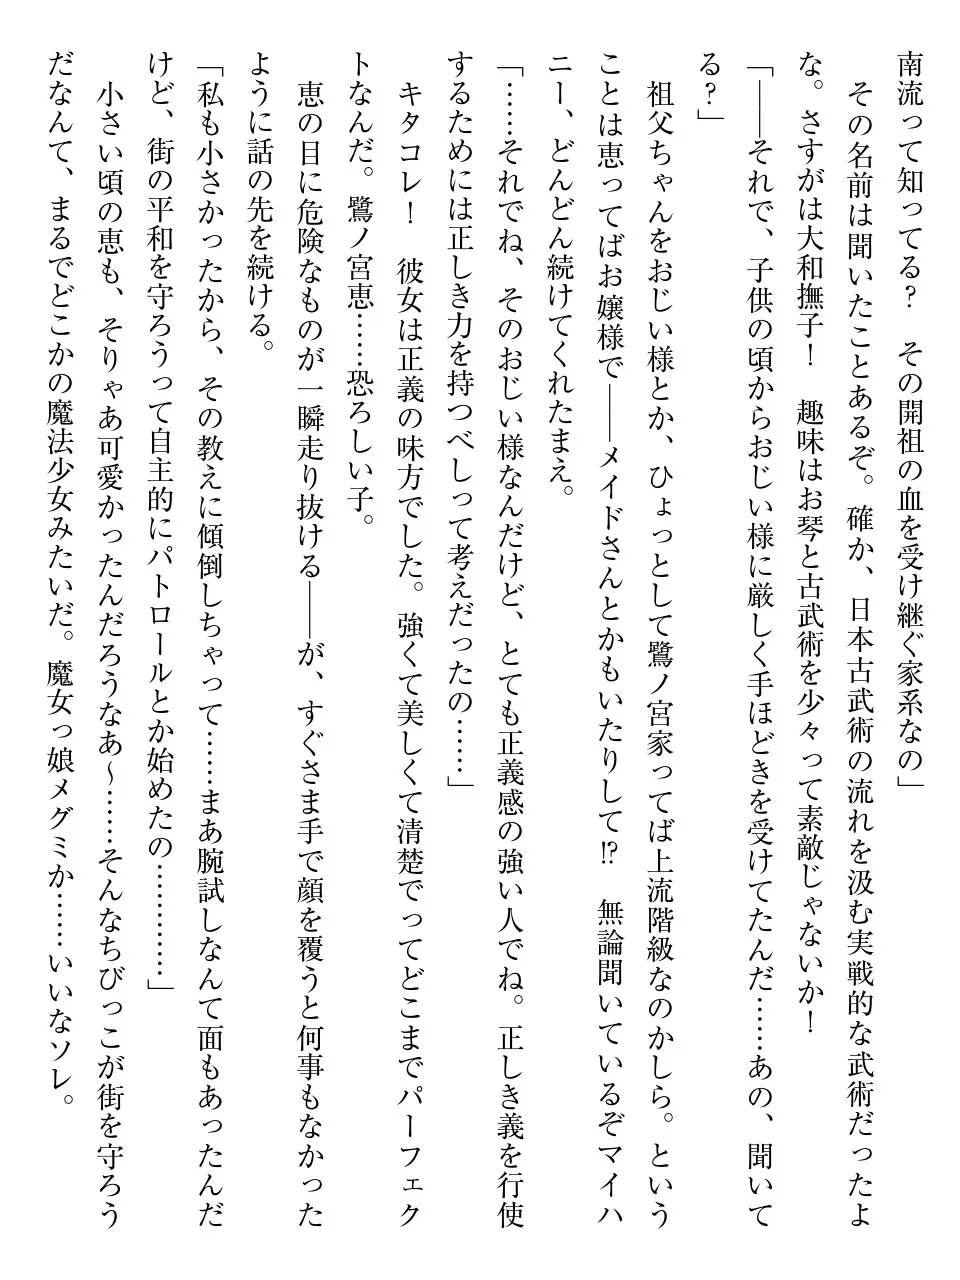 南流って知ってる？　その開祖の血を受け継ぐ家系なの」
　その名前は聞いたことあるぞ。確か、日本古武術の流れを汲む実戦的な武術だったよ
な。さすがは大和撫子！　趣味はお琴と古武術を少々って素敵じゃないか！
「――それで、子供の頃からおじい様に厳しく手ほどきを受けてたんだ……あの、聞いて
る？」
　祖父ちゃんをおじい様とか、ひょっとして鷺ノ宮家ってば上流階級なのかしら。という
ことは恵ってばお嬢様で――メイドさんとかもいたりして⁉　無論聞いているぞマイハ
ニー、どんどん続けてくれたまえ。
「……それでね、そのおじい様なんだけど、とても正義感の強い人でね。正しき義を行使
するためには正しき力を持つべしって考えだったの……」
　キタコレ！　彼女は正義の味方でした。強くて美しくて清楚でってどこまでパーフェク
トなんだ。鷺ノ宮恵……恐ろしい子。
　恵の目に危険なものが一瞬走り抜ける――が、すぐさま手で顔を覆うと何事もなかった
ように話の先を続ける。
「私も小さかったから、その教えに傾倒しちゃって……まあ腕試しなんて面もあったんだ
けど、街の平和を守ろうって自主的にパトロールとか始めたの…………」
　小さい頃の恵も、そりゃあ可愛かったんだろうなあ～……そんなちびっこが街を守ろう
だなんて、まるでどこかの魔法少女みたいだ。魔女っ娘メグミか……いいなソレ。